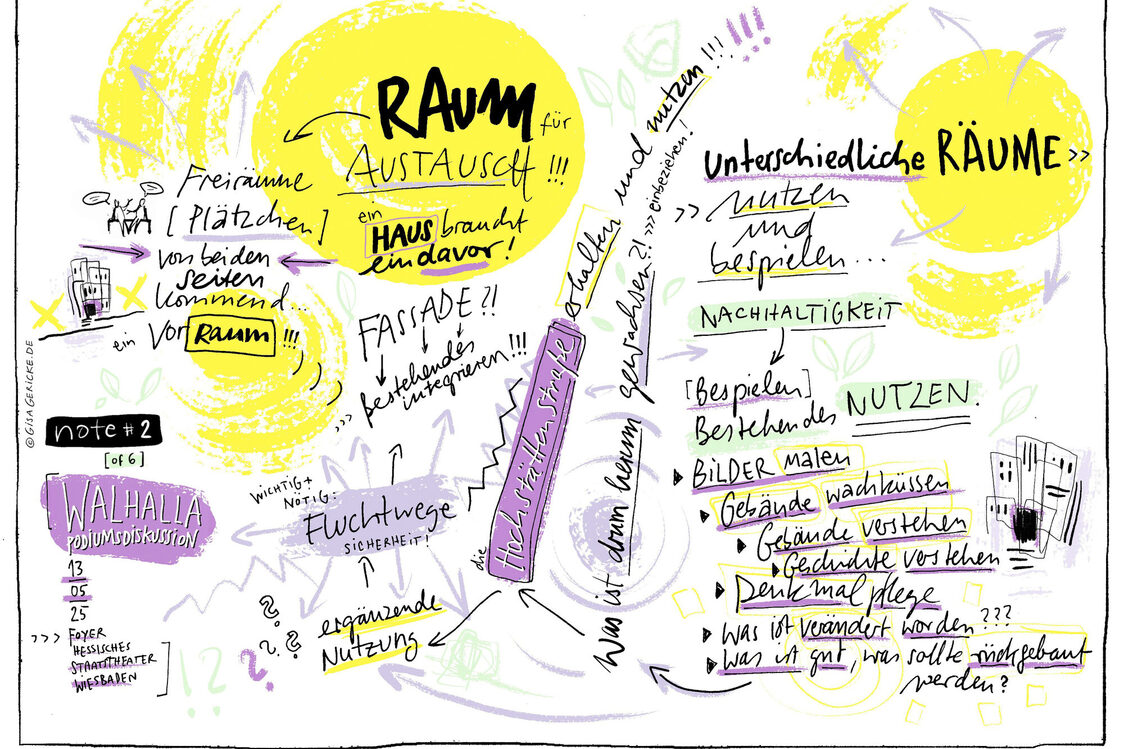 RAUM für
AUSTAUSCH !!!
ein
HAUS braucht
ein davor!
Freiräume
[Plätzchen]
von beiden
seiten
kommend...
ein Vor Raum !!!
FASSADE?!
>>> Bestehendes
integrieren!!!
©GISAGERICKE.DE
note #2
[of 6]
[WALHALLA
PODIUMSDISKUSSION
13
05
25
>>> FOYER
HESSISCHES
STAATSTHEATER
WIESBADEN]
WICHTIG +
NÖTIG:
Fluchtwege
SICHERHEIT!
ergänzende
Nutzung
???
???
!?
die Hochstättenstraße erhalten und nutzen!!! !!!
Was ist drum herum gewachsen?! >>> einbeziehen!
unterschiedliche RÄUME >>
>> nutzen
und
bespielen...
NACHHALTIGKEIT
[Bespielen]
Bestehendes NUTZEN.
BILDER malen
Gebäude wachküssen
Gebäude verstehen
Geschichte verstehen
Denkmalpflege
was ist verändert worden???
was ist gut, was sollte rückgebaut
werden?